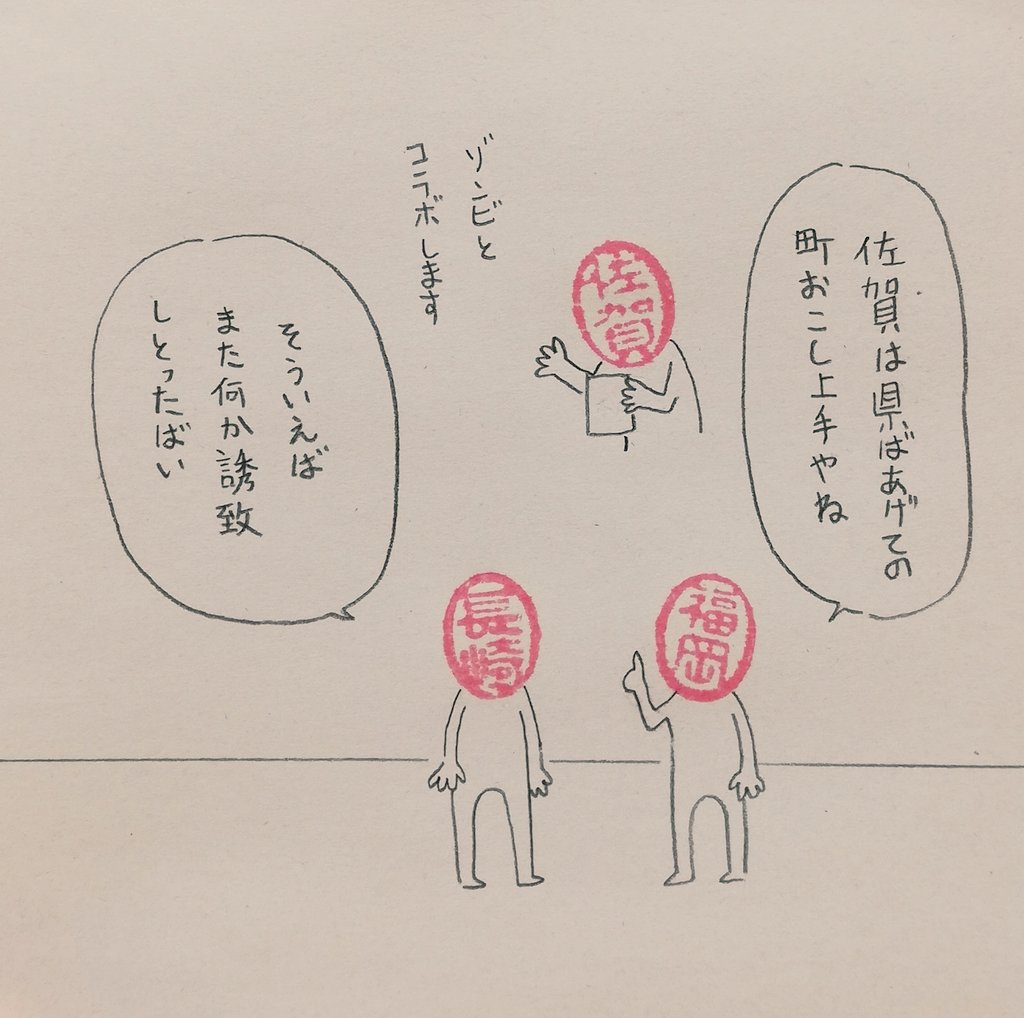 佐賀は県ばあげての
町おこし上手やね
佐賀
ゾンビと
コラボします
そういえば
また何か誘致
しとったばい
福岡
長崎